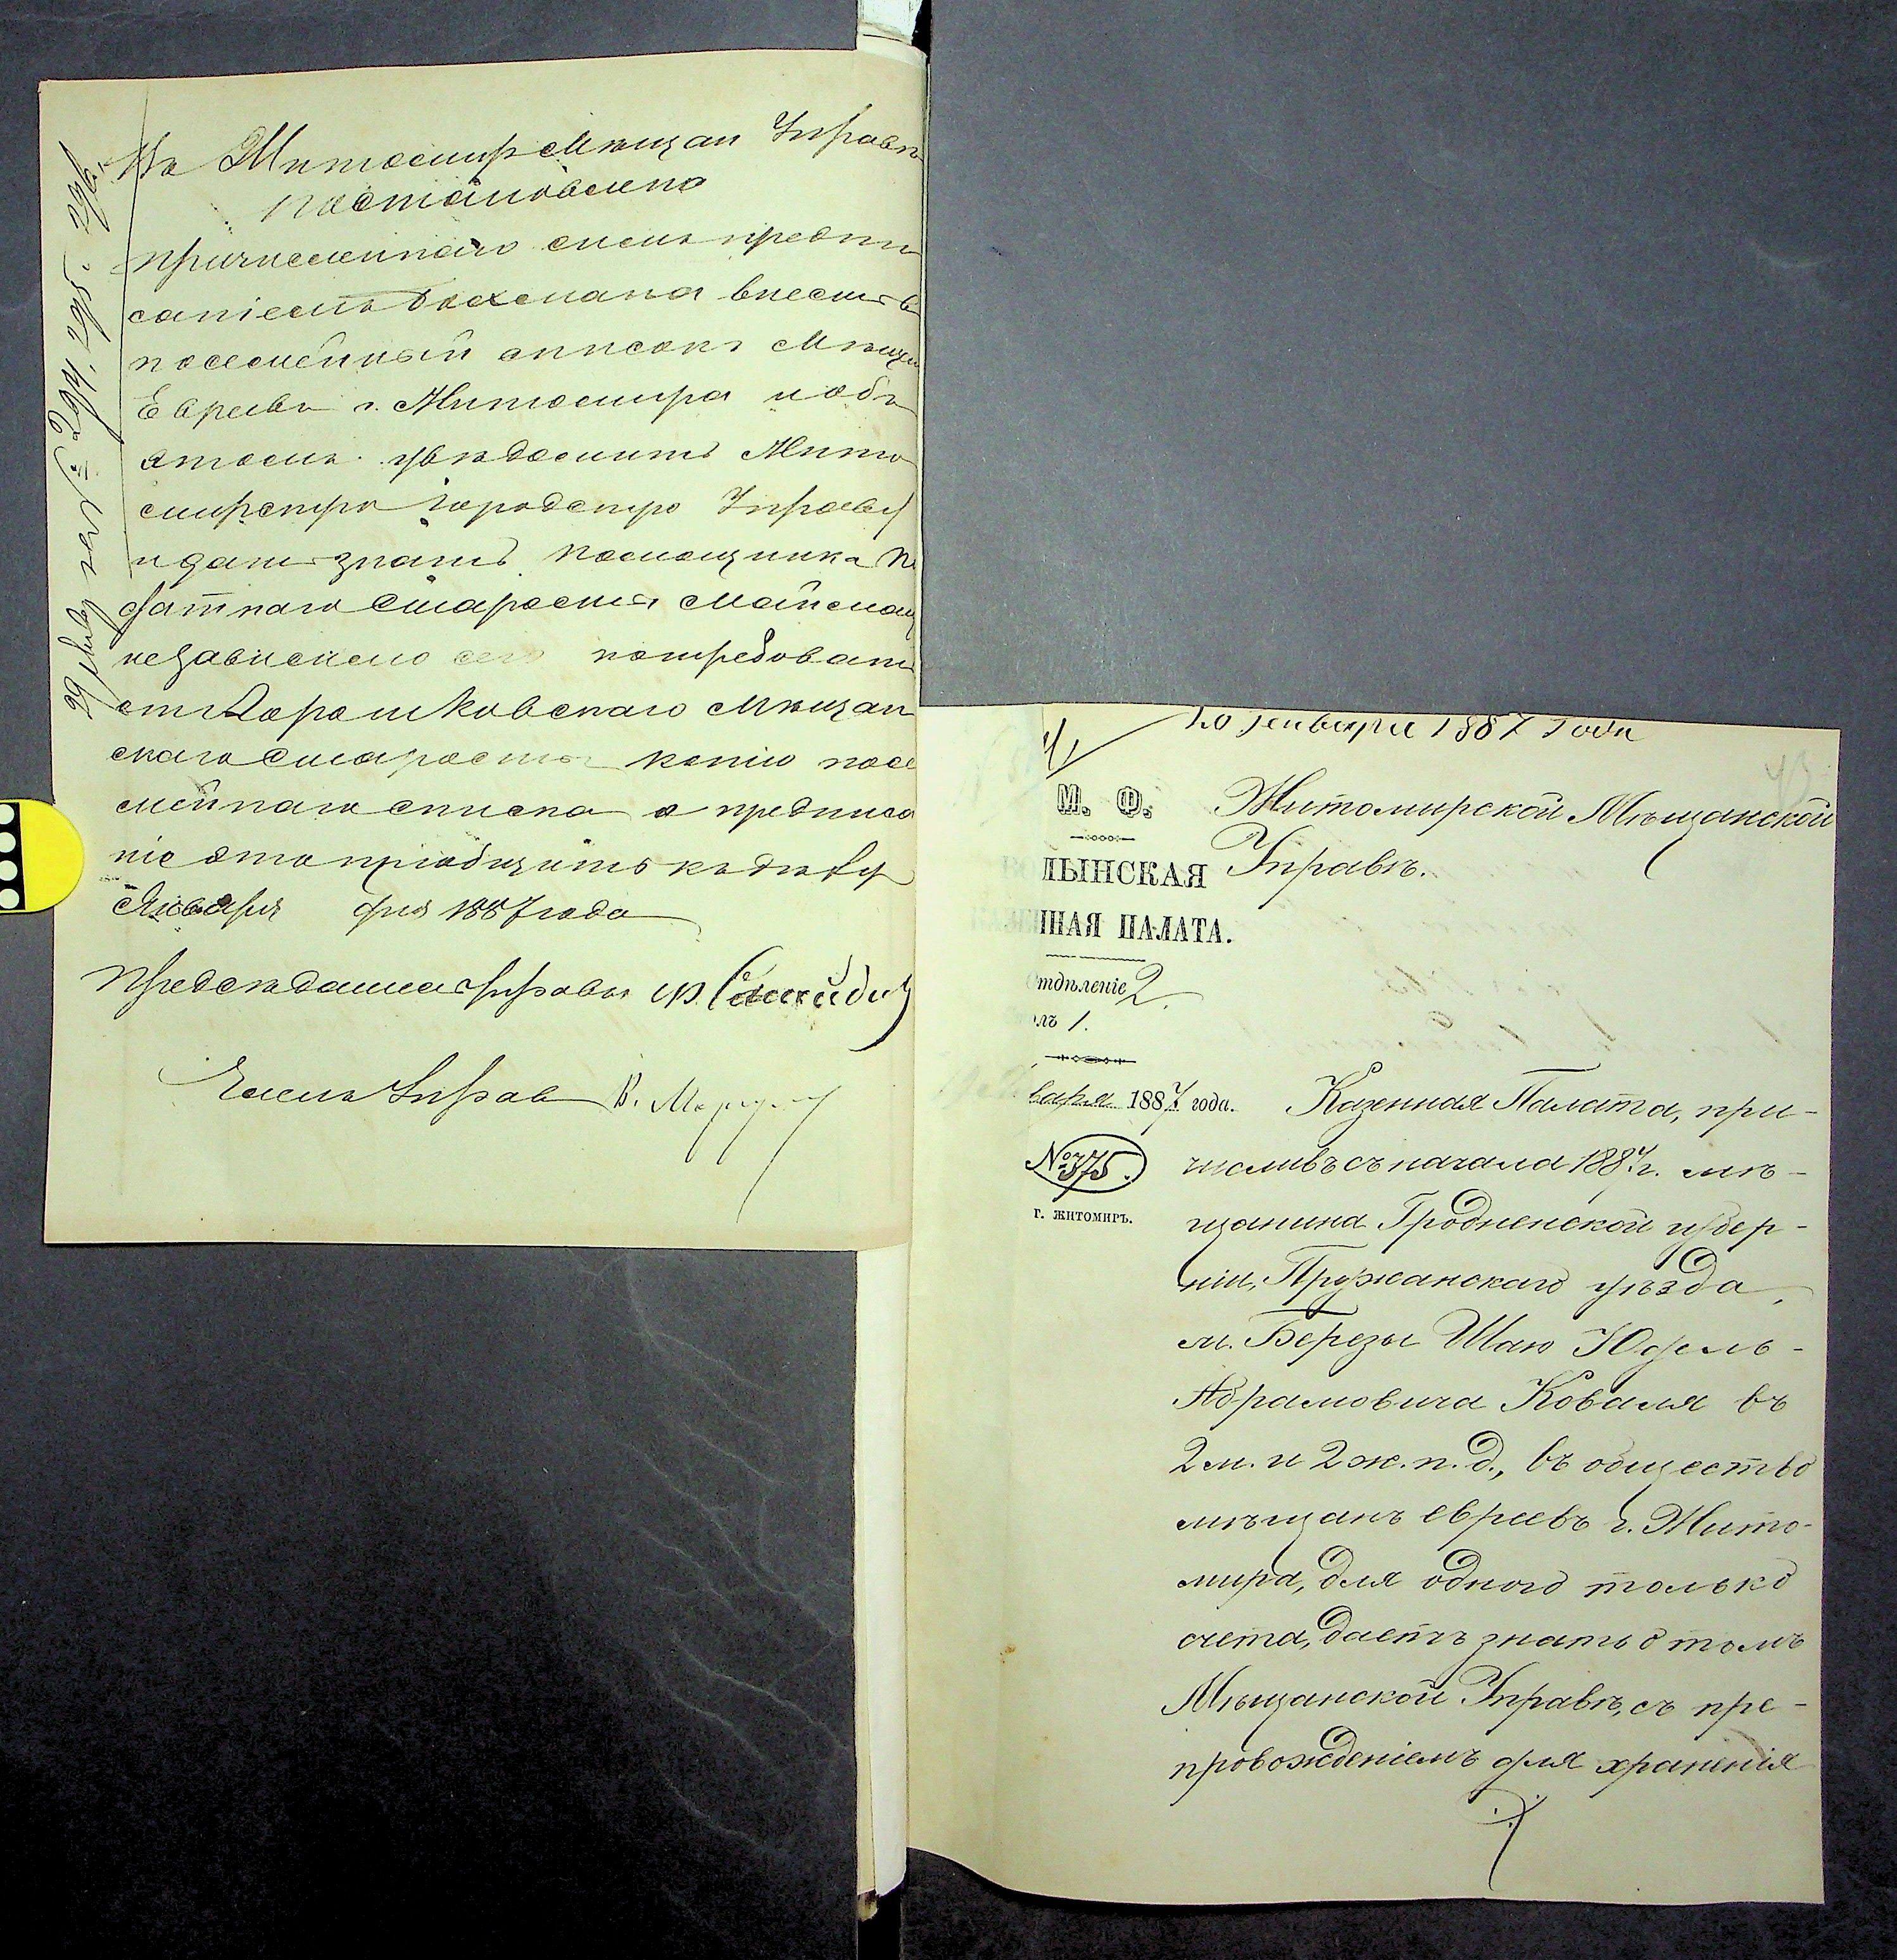 Въ Житомир Мѣщан Управѣ
постановлено
причисленнаго симъ предпи
саніемъ внести въ
посемейный списокъ Мѣщан
Евреевъ г. Житомира и объ
этомъ увѣдомить Жито
мирскую Городскую Управу
и дать знать помощника По
датнаго Старосты
независимо сего потребовать
отъ Мѣщан
скаго Старосты копію посе
мейнаго списка а предписа
ніе это пріобщить къ дѣлу
Января дня 1887 года
Предсѣдатель Управы
Членъ Управ
10 Генваря 1887 года
М. Ф.
ЛЫНСКАЯ
ННАЯ ПАЛАТА.
Отдѣленіе 2.
лъ 1.
варя 1887 года.
№ 375.
Г. ЖИТОМИРЪ.
Житомирской Мѣщанской
Управѣ.
Казенная Палата, при-
числивъ съ начала 1887 г. мѣ-
щанина Гродненской губер-
ніи, Пружанскаго уѣзда,
м. Березы Шаю Юдель-
Абрамовича Коваля въ
2 м. и 2 ж. п. д., въ общество
мѣщанъ евреевъ г. Жито-
мира, для одного только
счета, даетъ знать о томъ
Мѣщанской Управѣ, съ пре-
провожденіемъ для храненія